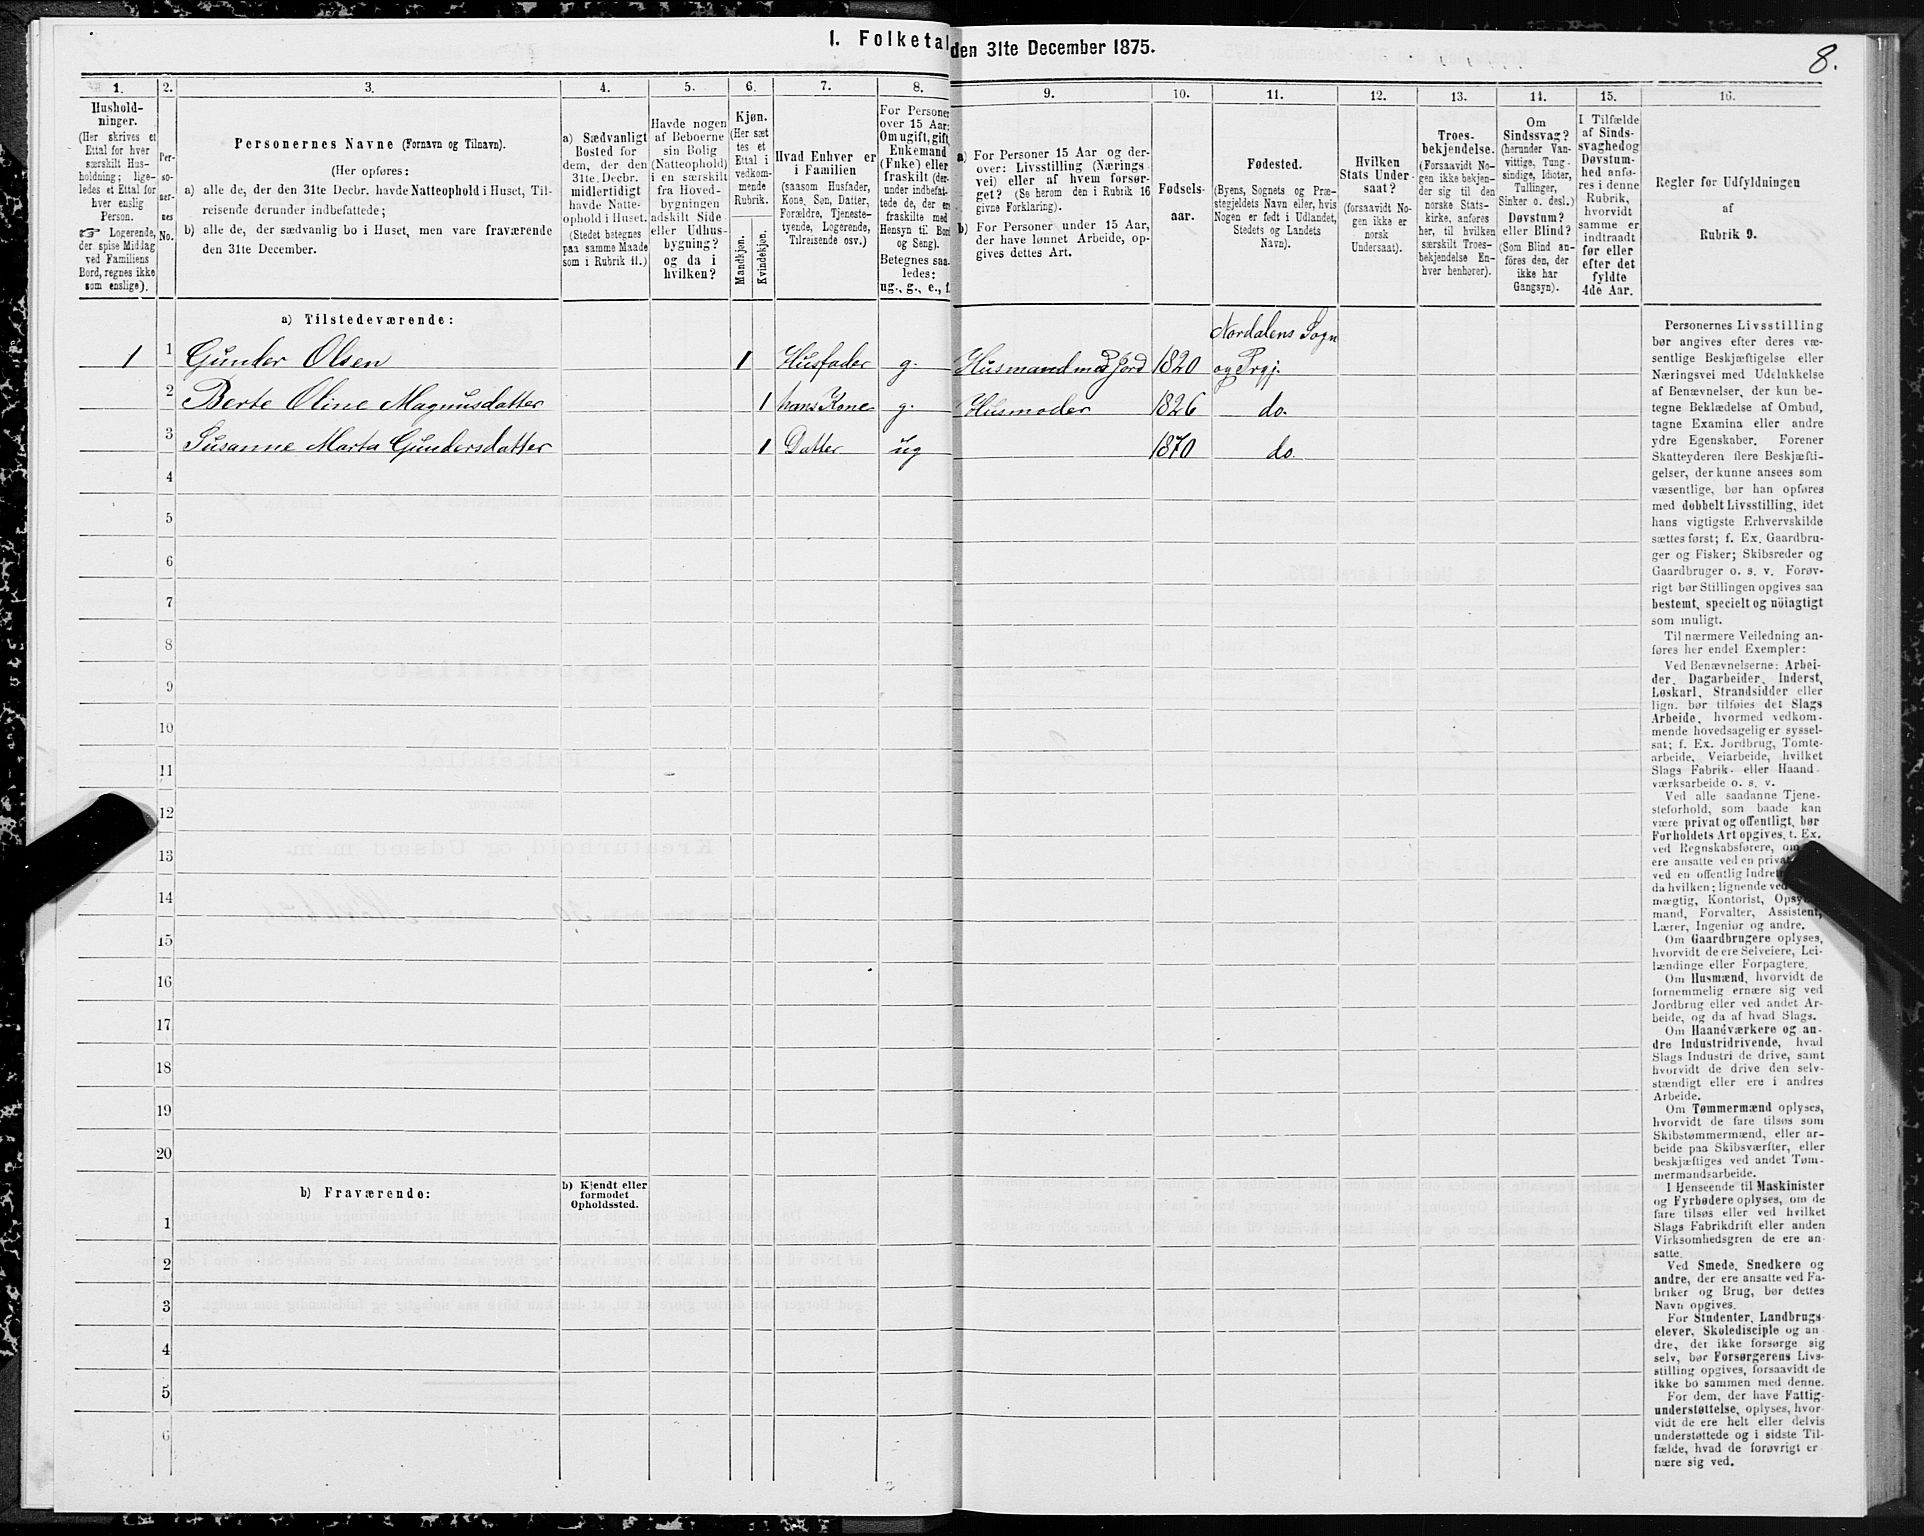 I. Folketal den 31te December 1875.
8.
1.
2.
3.
4.
5.
6.
7.
8.
9.
10.
11.
12.
13.
14.
15.
16.
Hushold-
ninger.
(Her skrives et
Ettal for hver
særskilt Hus-
holdning; lige-
ledes et Ettal for
hver enslig
Person.
☞ Logerende,
der spise Middag
ved Familiens
Bord, regnes ikke
som enslige).
Per-
so-
ner-
nes
No.
Personernes Navne (Fornavn og Tilnavn).
(Her opføres:
a) alle de, der den 31te Decbr. havde Natteophold i Huset, Til-
reisende derunder indbefattede;
b) alle de, der sædvanlig bo i Huset, men vare fraværende
den 31te December.
a) Sædvanligt
Bosted for
dem, der den
31te Decbr.
midlertidigt
havde Natte-
ophold i Huset.
(Stedet betegnes
paa samme Maade
som i Rubrik 11.)
Havde nogen
af Beboerne
sin Bolig
(Natteophold)
i en særskilt
fra Hoved-
bygningen
adskilt Side-
eller Udhus-
bygning?
og da i
hvilken?
Kjøn.
(Her sæt-
tes et
Ettal i
vedkom-
mende
Rubrik.
Mandkjøn.
Kvindekjøn.
Hvad Enhver er
i Familien
(saasom Husfader,
Kone, Søn, Datter,
Forældre, Tjeneste-
tyende, Logerende,
Tilreisende osv.)
For Personer
over 15 Aar:
Om ugift, gift,
Enkemand
(Enke) eller
fraskilt (der-
under indbefat-
tede de, der ere
fraskilte med
Hensyn til Bord
og Seng).
Betegnes saa-
ledes:
ug., g., e., f.
a) For Personer 15 Aar og der-
over: Livsstilling (Nærings-
vei) eller af hvem forsør-
get? (Se herom den i Rubrik 16
givne Forklaring).
b) For Personer under 15 Aar,
der have lønnet Arbeide, op-
gives dettes Art.
Fødsels-
aar.
Fødested.
(Byens, Sognets og Præ-
stegjeldets Navn eller, hvis
Nogen er født i Udlandet,
Stedets og Landets
Navn).
Hvilken
Stats Under-
saat?
(forsaavidt No-
gen ikke er
norsk
Undersaat).
Troes-
bekjendelse.
(Forsaavidt No-
gen ikke bekjen-
der sig til den
norske Stats-
kirke, anføres
her, til hvilken
særskilt Troes-
bekjendelse En-
hver henhører).
Om
Sindssvag?
(herunder Van-
vittige, Tung-
sindige, Idioter,
Tullinger,
Sinker o. desl.)
Døvstum?
eller Blind?
(Som Blind an-
føres den, der
ikke har
Gangsyn).
I Tilfælde
af Sinds-
svaghed og
Døvstum-
hed anfø-
res i denne
Rubrik,
hvorvidt
samme er
indtraadt
før eller
efter det
fyldte
4de Aar.
Regler for Udfyldningen
af
Rubrik 9.
a) Tilstedeværende:
Nordalens Sogn
1 1 Gunder Olsen 1 Husfader g. Husmand med Jord 1820 og Prgj.
2 Berte Oline Magnusdatter 1 hans Kone g. Husmoder 1826 do.
3 Susanne Marta Gundersdatter 1 Datter ug 1870 do.
4
5
6
7
8
9
10
11
12
13
14
15
16
17
18
19
20
b) Fraværende:
b) Kjendt eller
formodet
Opholdssted.
1
2
3
4
5
6
Personernes Livsstilling
bør angives efter deres væ-
sentlige Beskjæftigelse eller
Næringsvei med Udelukkelse
af Benævnelser, der kun be-
tegne Beklædelse af Ombud,
tagne Examina eller andre
ydre Egenskaber. Forener
Skatteyderen flere Beskjæfti-
gelser, der kunne ansees som
væsentlige, bør han opføres
med dobbelt Livsstilling, idet
hans vigtigste Erhvervskilde
sættes først; f. Ex. Gaardbru-
ger og Fisker; Skibsreder og
Gaardbruger o. s. v. Forøv-
rigt bør Stillingen opgives saa
bestemt, specielt og nöiagtigt
som muligt.
Til nærmere Veiledning an-
føres her endel Exempler:
Ved Benævnelserne: Arbei-
der, Dagarbeider, Inderst,
Løskarl, Strandsidder eller
lign. bør tilføies det Slags
Arbeide, hvormed vedkom-
mende hovedsagelig er syssel-
sat; f. Ex. Jordbrug, Tomte-
arbeide, Veiarbeide, hvilket
Slags Fabrik- eller Haand-
værksarbeide o. s. v.
Ved alle saadanne Tjene-
steforhold, som baade kan
være privat og offentligt, bør
Forholdets Art opgives, t. Ex.
ved Regnskabsførere, om
ere ansatte ved en privat
ved en offentlig Indret
da hvilken; lignende ved
mægtig, Kontorist, Opsy
mand, Forvalter, Assistent,
Lærer, Ingeniør og andre.
Om Gaardbrugere oplyses,
hvorvidt de ere Selveiere, Lei-
lændinge eller Forpagtere.
Om Husmænd, hvorvidt de
fornemmelig ernære sig ved
Jordbrug eller ved andet Ar-
beide, og da af hvad Slags.
Om Haandværkere og an-
dre Industridrivende, hvad
Slags Industri de drive, samt
hvorvidt de drive den selv-
stændigt eller ere i andres
Arbeide.
Om Tømmermænd oplyses,
hvorvidt de fare tilsøs som
Skibstømmermænd, eller ar-
beide paa Skibsværfter, eller
beskjæftiges ved andet Tøm-
mermandsarbeide.
I Henseende til Maskinister
og Fyrbødere oplyses, om de
fare tilsøs eller ved hvilket
Slags Fabrikdrift eller anden
Virksomhedsgren de ere an-
satte.
Ved Smede, Snedkere og
andre, der ere ansatte ved Fa-
briker og Brug, bør dettes
Navn opgives.
For Studenter, Landbrugs-
elever, Skoledisciple og an-
dre, der ikke forsørge sig
selv, bør Forsørgerens Livs-
stilling opgives, forsaavidt de
ikke bo sammen med denne.
For dem, der have Fattig-
understøttelse, oplyses, hvor-
vidt de ere helt eller delvis
understøttede og i sidste Til-
fælde, hvad de forøvrigt er-
nære sig ved.